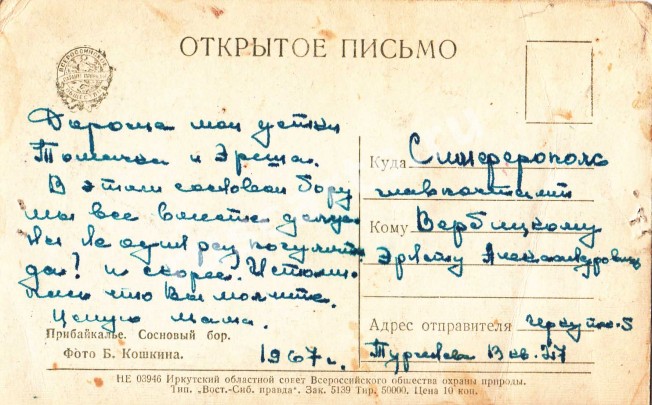 ОТКРЫТОЕ ПИСЬМО
Дорогие мои детки
Томичка и Эрьша.
В этом сосновом бору
мы все вместе
не один раз
да? и скорее.
что Вы молчите.
Целую мама.
Прибайкалье. Сосновый бор.
Фото Б. Кошкина.
1967 г.
Куда Симферополь
главпочтамт
Кому Вербицкому
Эрнсту Александровичу
Адрес отправителя
кв. 37
НЕ 03946 Иркутский областной совет Всероссийского общества охраны природы.
Тип. „Вост.-Сиб. правда". Зак. 5139 Тир. 50000. Цена 10 коп.